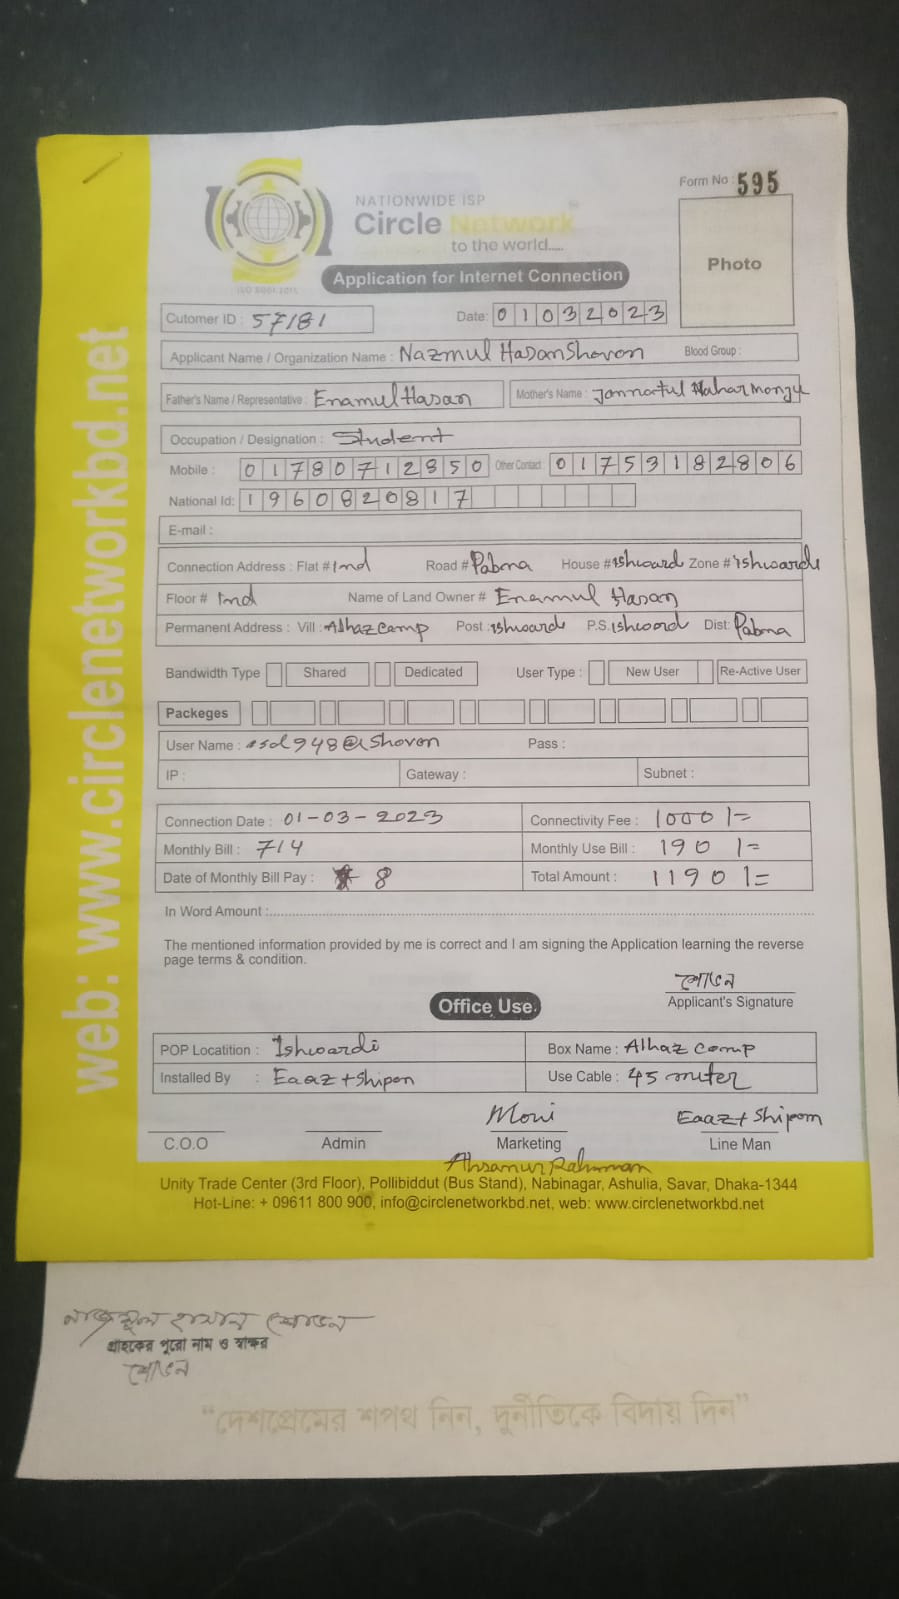 Form No : 595
NATIONWIDE ISP
Circle Network
to the world.....
ISO 9001:2015
Application for Internet Connection
Photo
Cutomer ID : 57181
Date: 01032023
Applicant Name / Organization Name : Nazmul Hasan Shovon Blood Group :
Father's Name / Representative : Enamul Hasan Mother's Name : Jannatul Nahar Monju
Occupation / Designation : Student
Mobile : 01780712850 Other Contact 01753182806
National Id: 1960820817
E-mail :
Connection Address : Flat # Ind Road # Pabna House # Ishward Zone # ishwardi
Floor # Ind Name of Land Owner # Enamul Hasan
Permanent Address : Vill : Alhaz camp Post : ishwardi P.S. ishword Dist: Pabna
Bandwidth Type Shared Dedicated User Type : New User Re-Active User
Packeges
User Name : Pass :
IP : Gateway : Subnet :
Connection Date : 01-03-2023 Connectivity Fee : 1000/=
Monthly Bill : 714 Monthly Use Bill : 190/=
Date of Monthly Bill Pay : 8 Total Amount : 1190/=
In Word Amount :
The mentioned information provided by me is correct and I am signing the Application learning the reverse
page terms & condition.
শোভন
Applicant's Signature
Office Use
POP Locatition : Ishwardi Box Name : Alhaz comp
Installed By : Eaaz + Shipon Use Cable : 45 miter
Moni Eaaz + Shipom
C.O.O Admin Marketing Line Man
Ahsanur Rahman
Unity Trade Center (3rd Floor), Pollibiddut (Bus Stand), Nabinagar, Ashulia, Savar, Dhaka-1344
Hot-Line: + 09611 800 900, info@circlenetworkbd.net, web: www.circlenetworkbd.net
web: www.circlenetworkbd.net
নাজমুল হাসান শোভন
গ্রাহকের পুরো নাম ও স্বাক্ষর
শোভন
“দেশপ্রেমের শপথ নিন, দুর্নীতিকে বিদায় দিন”